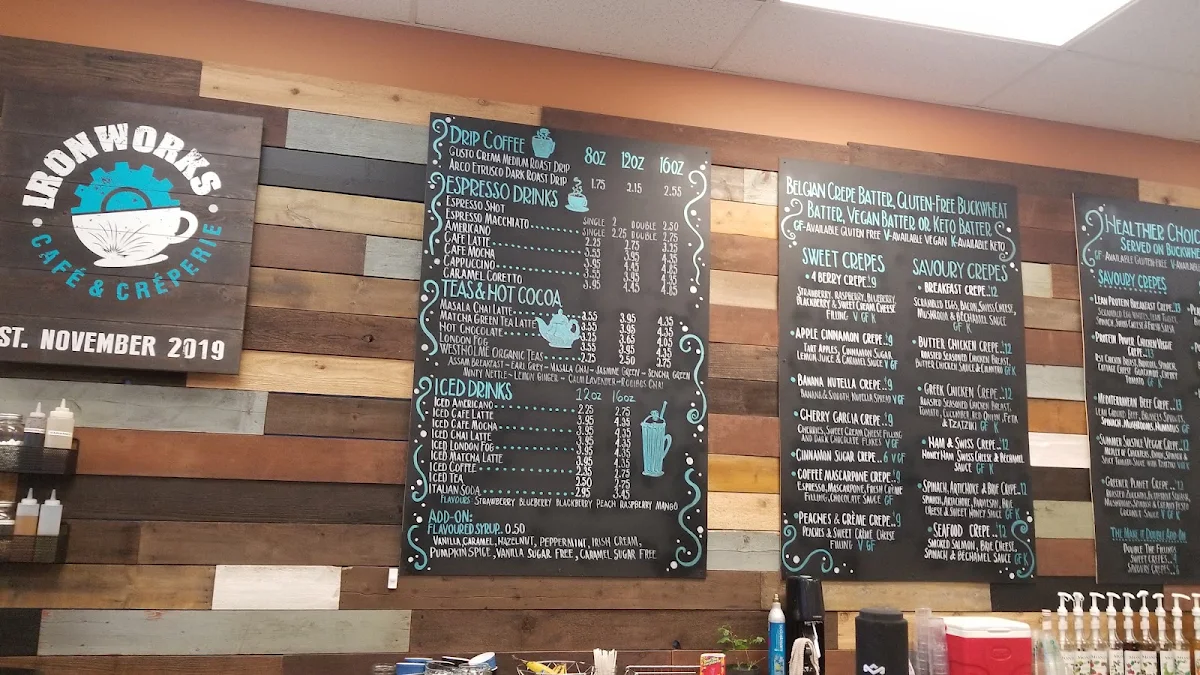 IRONWORKS
CAFÉ & CRÊPERIE
EST. NOVEMBER 2019
DRIP COFFEE 8OZ 12OZ 16OZ
GUSTO CREMA MEDIUM ROAST DRIP
ARCO ETRUSCO DARK ROAST DRIP 1.75 2.15 2.55
ESPRESSO DRINKS
ESPRESSO SHOT SINGLE 2 DOUBLE 2.50
ESPRESSO MACCHIATO SINGLE 2.25 DOUBLE 2.75
AMERICANO 2.25 2.75 3.25
CAFE LATTE 3.55 3.95 4.35
CAFE MOCHA 3.95 4.45
CAPPUCCINO 3.55
CARAMEL CORETTO 3.95 4.45 4.85
TEAS & HOT COCOA
MASALA CHAI LATTE 3.55 3.95 4.35
MATCHA GREEN TEA LATTE 3.95 4.35
HOT CHOCOLATE 3.25 3.65 4.05
LONDON FOG 3.55 3.95 4.35
WESTHOLME ORGANIC TEAS 2.25 2.50 2.75
ASSAM BREAKFAST - EARL GREY - MASALA CHAI - JASMINE GREEN - SENCHA GREEN
MINTY NETTLE - LEMON GINGER - CALM LAVENDER - ROOIBOS CHAI
ICED DRINKS 12oz 16oz
ICED AMERICANO 2.25 2.75
ICED CAFE LATTE 3.95 4.35
ICED CAFE MOCHA 3.95 4.35
ICED CHAI LATTE 3.95 4.35
ICED LONDON FOG 3.95 4.35
ICED MATCHA LATTE 3.95 4.35
ICED COFFEE 2.35
ICED TEA 2.50 2.75
ITALIAN SODA 2.95 3.45
FLAVOURS STRAWBERRY BLUEBERRY BLACKBERRY PEACH RASPBERRY MANGO
ADD-ON:
FLAVOURED SYRUP.. 0.50
VANILLA, CARAMEL, HAZELNUT, PEPPERMINT, IRISH CREAM,
PUMPKIN SPICE, VANILLA SUGAR FREE, CARAMEL SUGAR FREE
BELGIAN CREPE BATTER, GLUTEN-FREE BUCKWHEAT
BATTER, VEGAN BATTED OR KETO BATTER
GF-AVAILABLE GLUTEN FREE V-AVAILABLE VEGAN K-AVAILABLE KETO
SWEET CREPES
4 BERRY CREPE..9
STRAWBERRY, RASPBERRY, BLUEBERRY,
BLACKBERRY & SWEET CREAM CHEESE
FILLING V GF K
APPLE CINNAMON CREPE..9
TART APPLES, CINNAMON SUGAR
LEMON JUICE & CARAMEL SAUCE V GF
BANANA NUTELLA CREPE..9
BANANA & SMOOTH NUTELLA SPREAD V GF
CHERRY GARCIA CREPE..9
CHERRIES, SWEET CREAM CHEESE FILLING
AND DARK CHOCOLATE FLAKES V GF
CINNAMON SUGAR CREPE.. 6 V GF
COFFEE MASCARPONE CREPE..9
ESPRESSO, MASCARPONE, FRESH CRÈME
FILLING, CHOCOLATE SAUCE GF
PEACHES & CRÈME CREPE..9
PEACHES & SWEET CRÈME CHEESE
FILLING V GF
SAVOURY CREPES
BREAKFAST CREPE..12
SCRAMBLED EGGS, BACON, SWISS CHEESE,
MUSHROOM & BÉCHAMEL SAUCE
GF K
BUTTER CHICKEN CREPE..12
ROASTED SEASONED CHICKEN BREAST,
BUTTER CHICKEN SAUCE & CILANTRO GF K
GREEK CHICKEN CREPE..12
ROASTED SEASONED CHICKEN BREAST,
TOMATO, CUCUMBER, RED ONION, FETA
& TZATZIKI GF K
HAM & SWISS CREPE..12
HONEY HAM, SWISS CHEESE & BÉCHAMEL
SAUCE GF K
SPINACH, ARTICHOKE & BRIE CREPE..12
SPINACH, ARTICHOKE, PARMESAN, BRIE
CHEESE & SWEET HONEY SAUCE GF K
SEAFOOD CREPE..12
SMOKED SALMON, BRIE CHEESE,
SPINACH & BÉCHAMEL SAUCE GF K
HEALTHIER CHOIC
SERVED ON BUCKWHE
GF AVAILABLE GLUTEN-FREE V-AVAILABLE
SAVOURY CREPES
LEAN PROTEIN BREAKFAST CREPE..13
SCRAMBLED EGG WHITES,
SPINACH, SWISS CHEESE & FRESH SALSA
PROTEIN POWER CHICKEN/VEGGIE
CREPE..13
CHICKEN BREAST, SPINACH,
COTTAGE CHEESE, GUACAMOLE, CHERRY
TOMATO GF K
MEDITERRANEAN BEEF CREPE..13
LEAN GROUND BEEF, SPROUTS,
SPINACH, MUSHROOMS, HUMMUS GF
SUMMER SOLSTICE VEGGIE CREPE
GREENER PLANET CREPE..12
COCONUT SAUCE V GF K
THE MAKE IT DOUBLE ADD-ON
DOUBLE THE FILLINGS
SWEET CREPES
SAVOURY CREPES